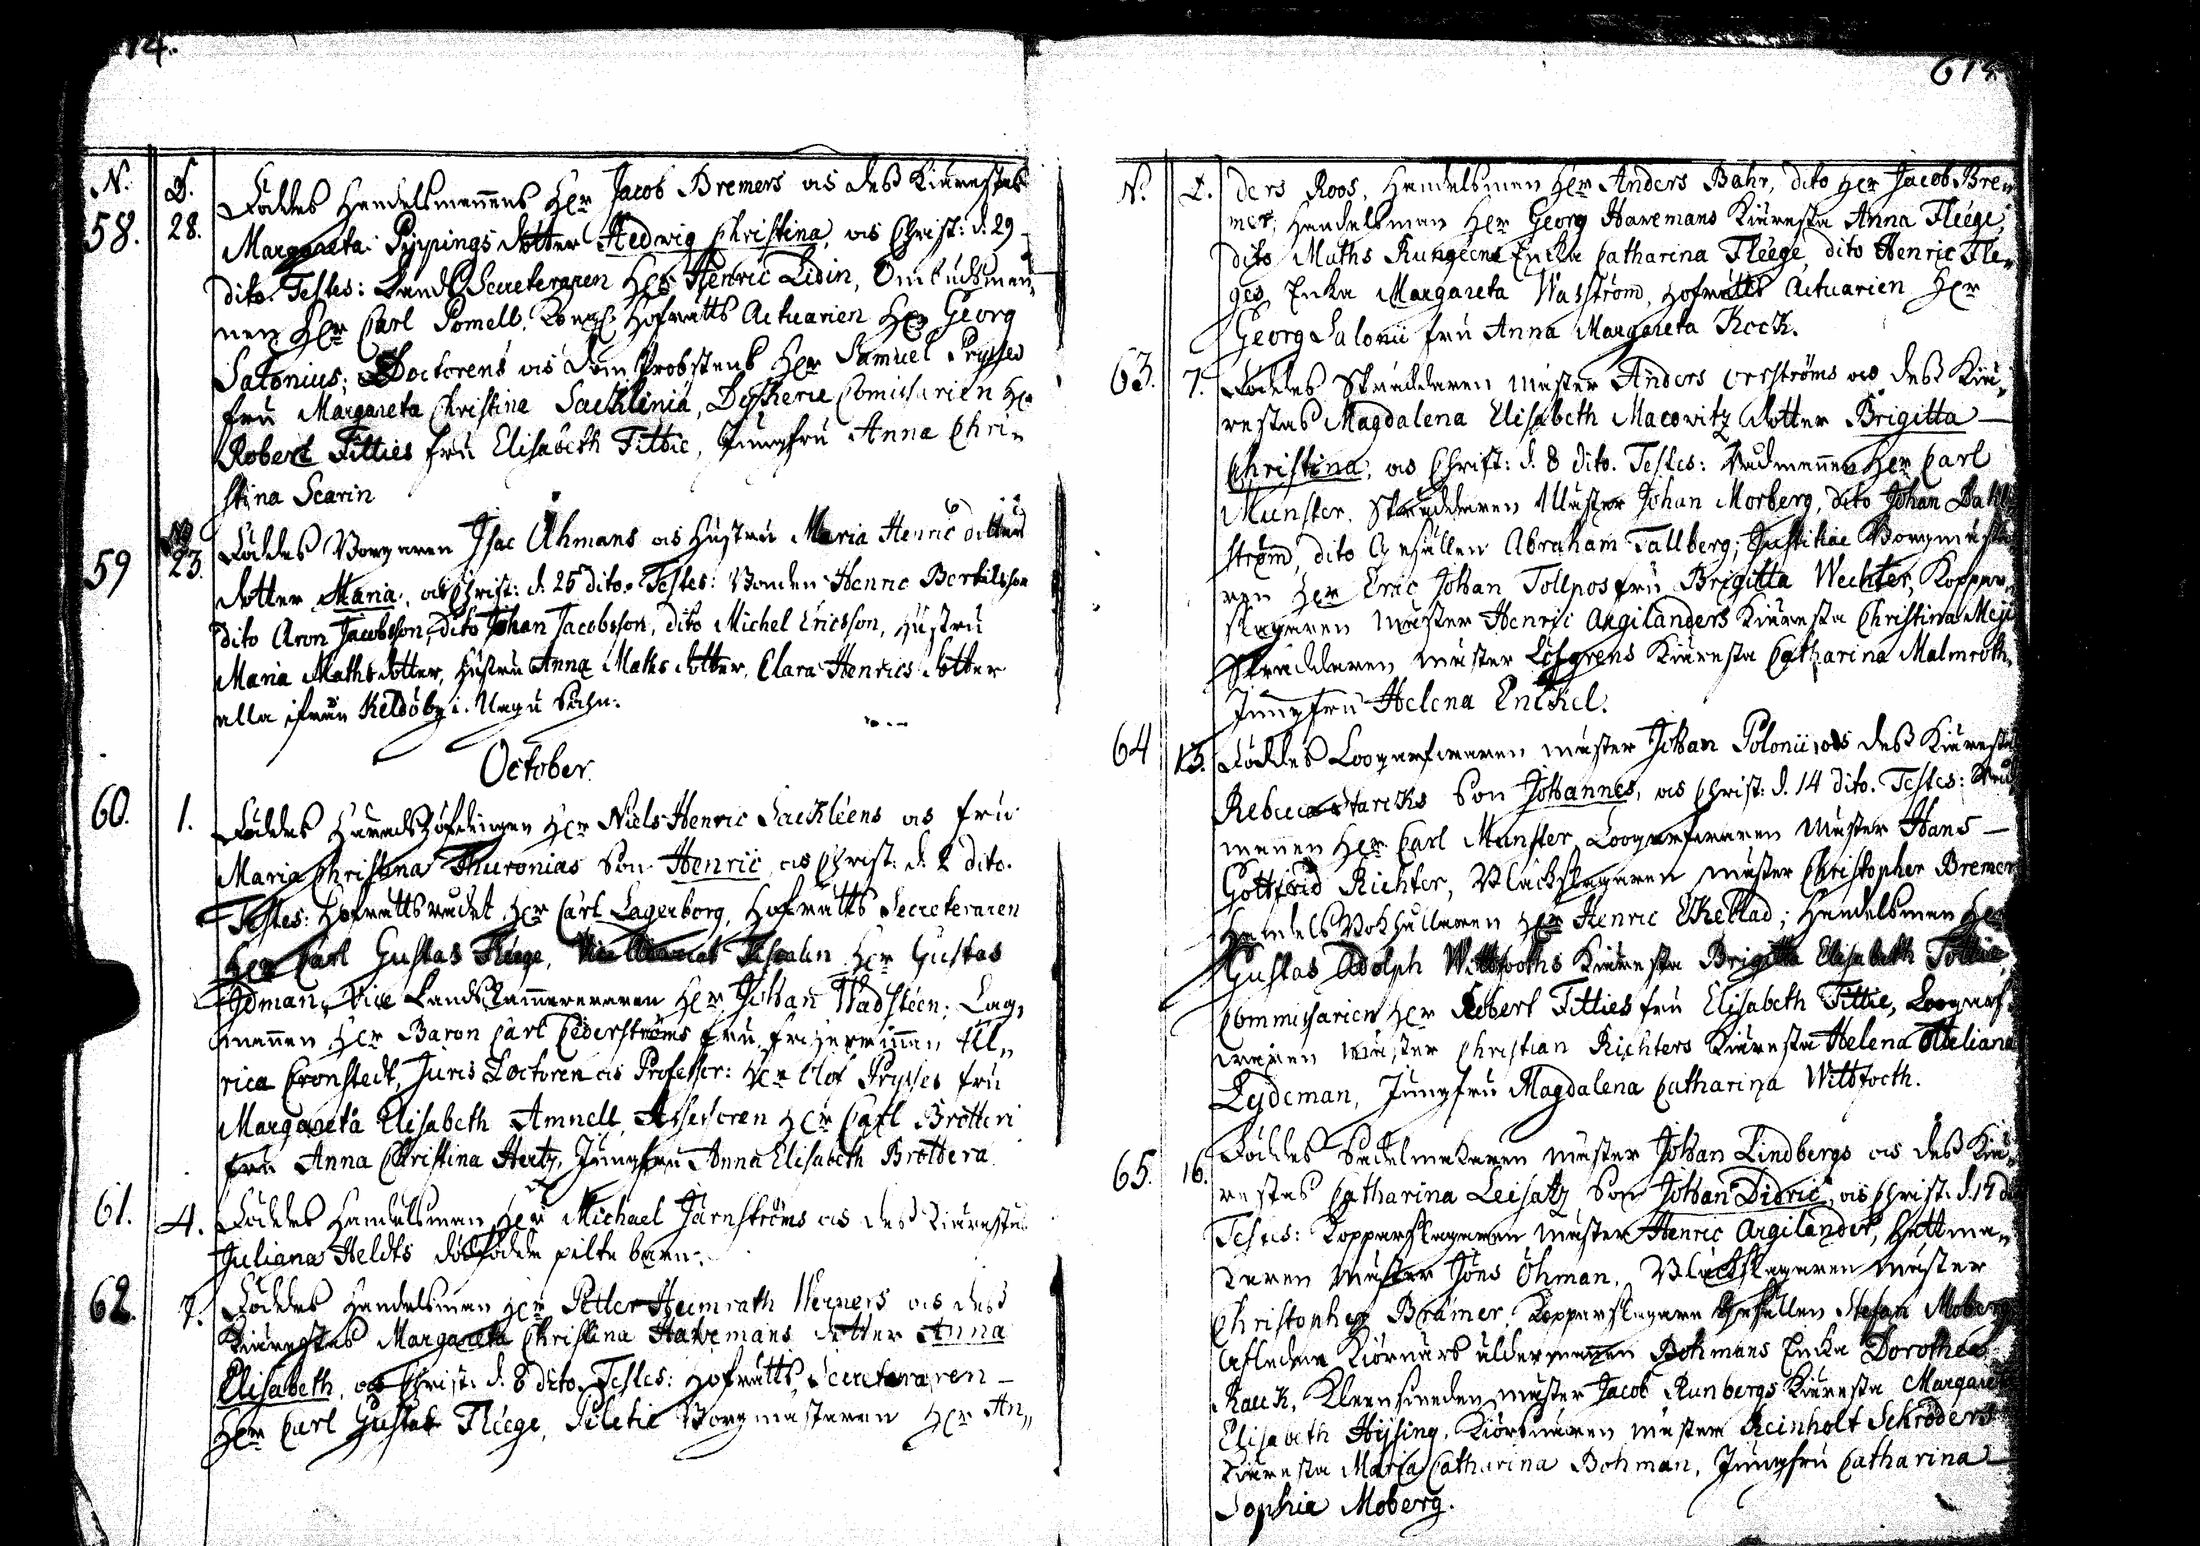 14.
N. D.
58. 28. Föddes Handelsmannens Her Jacob Bremers as dess Kiærestas
Margareta Pippings dotter Hedwig Christina, as Christ: d. 29
dito. Testes: Lands Secreteraren Her Henric Lidin, Ombudsman„
nen Her Carl Pomell, Kongl. Hofrätts Actuarien Her Georg
Salonius; Doctorens as Dom Probstens Her Samuel Pryss
fru Margareta Christina Sacklinia, Commisarien Her
Robert Fitties fru Elisabeth Fittie, Jungfru Anna Chri„
stina Scarin
59 23. Föddes Borgaren Isac Uhmans as Hustru Maria Henrics dotters
dotter Maria, as Christ: d. 25 dito. Testes: Bonden Henric Bertilsson
dito Aron Jacobsson, dito Johan Jacobsson, dito Michel Ericsson, Hustru
Maria Maths dotter, Hustru Anna Maths dotter, Clara Henrics dotter
alla ifrån Keldöby i Nagu Sochn.
October.
60. 1. Föddes Häradshöfdingen Her Niels Henric Sackléens as fru
Maria Christina Thuronias Son Henric as Christ: d. 2 dito.
Testes: Hofrättsrådet Her Carl Lagerborg, Hofrätts Secreteraren
Her Carl Gustaf Fléege, Vice Her Gustaf
Idman, Vice Landskammereraren Her Johan Wadstéen; Lag„
mannen Her Baron Carl Cederströms fru friherrinnan Ull„
rica Cronstedt, Juris Doctoren as Professor: Her Olof Prysses fru
Margareta Elisabeth Amnell, Assessoren Her Carl Brotteri
fru Anna Christina Hertz, Jungfru Anna Elisabeth Brottera.
61. 4. Föddes Handelsman Her Michael Järnströms as dess Kiærestas
Juliana Heldts dödfödde pilte barn.
62. 7. Föddes Handelsman Her Petter Heimrath Werners as dess
Kiærestas Margareta Christina Havemans dotter Anna
Elisabeth, as Christ: d. 8 dito. Testes: Hofrätts Secreteraren
Her Carl Gustaf Fléege, Politie Borgmästaren Her An„
N. D. 615
ders Roos, Handelsman Her Anders Bahr, dito Her Jacob Bre„
mer; Handelsman Her Georg Havemans Kiæresta Anna Fléege,
dito Maths Rungeens Enka Catharina Fléege, dito Henric Fle„
ges Enka Margareta Wasström, Hofrätts Actuarien Her
Georg Salonii fru Anna Margareta Kock.
63. 7. Föddes Skräddaren Mäster Anders Orrströms as dess Kiæ„
restas Magdalena Elisabeth Macovitz dotter Brigitta
Christina, as Christ: d. 8 dito. Testes: Rådmannen Her Carl
Munster, Skräddaren Mäster Johan Morberg, dito Johan Dahl
ström, dito Gesällen Abraham Tallberg; Justitiæ Borgmästa
ren Her Eric Johan Tollpos fru Brigitta Wechter, Koppar„
slagaren Mäster Henric Argilanders Kiæresta Christina Meij
Skräddaren Mäster Löfgrens Kiæresta Catharina Malmroth,
Jungfru Helena Enckel.
64 13. Föddes Loogarfwaren Mäster Johan Polonii as dess Kiæresta
Rebecca Starcks Son Johannes, as Christ: d. 14 dito. Testes: Råd
mannen Her Carl Munster, Loogarfwaren Mäster Hans
Gottfrid Richter, Blackslagaren Mäster Christopher Bremer
Handels Bokhållaren Her Henric Ekeblad; Handelsman Her
Gustaf Adolph Wittfooths Kiæresta Brigitta Elisabeth Tollie,
Commissarien Her Robert Fitties fru Elisabeth Fittie, Loogarf„
waren Mäster Christian Richters Kiæresta Helena Otteliana
Lydeman, Jungfru Magdalena Catharina Wittfooth.
65. 16. Föddes Sadelmakaren Mäster Johan Lindbergs as dess Kiæ„
restas Catharina Leisatz Son Johan Didric, as Christ. d. 17 d.
Testes: Kopparslagaren Mäster Henric Argilander, Hattma„
karen Mäster Jöns Öhman, Blackslagaren Mäster
Christopher Bramer, Kopparslagare Gesällen Stefan Moberg
Afledne Körsnärs åldermannen Bohmans Enka Dorothea
Rauck, Kleensmeden Mäster Jacob Runbergs Kiæresta Margareta
Elisabeth Hising, Körsnären Mäster Reinholt Schröders
Kiæresta Maria Catharina Bohman, Jungfru Catharina
Sophia Moberg.